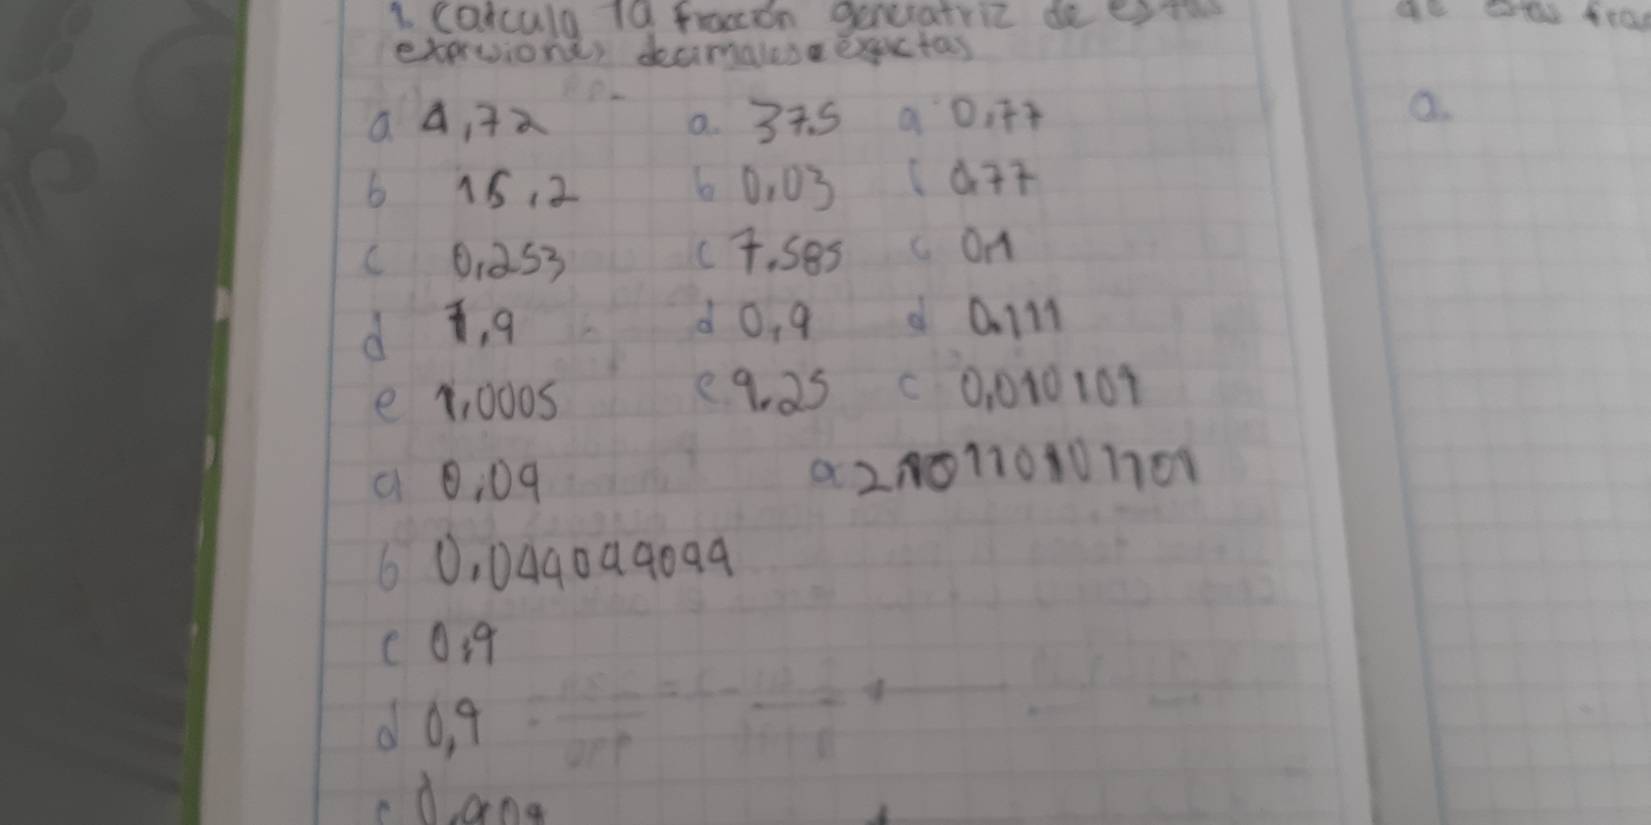 1. Calcula la fracción generatriz de estas
expresiones decimales exactas
a 4,72 a. 37.5 a 0,77
b 15,2 b 0,03 0,77
c 0,253 c 7.585 c 0,1
d 1,9 d 0,9 d 0,111
e 1,0005 e 9.25 c 0,010101
a 0,09 a
b 0,049049049
c 0,9
d 0,9
a.